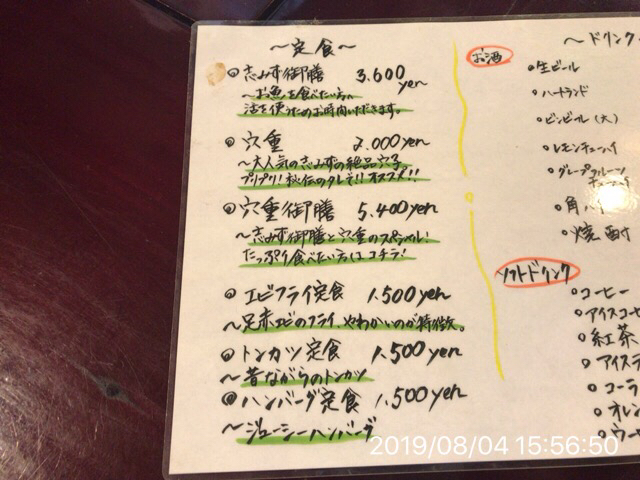 ～定食～
◎志みず御膳 3.600yen
～お魚を食べたい方へ
活を使うためお時間いただきます。
◎穴重 2.000yen
～大人気の志みずの絶品穴子。
プリプリ！秘伝のタレぞ!!オススメ!!
◎穴重御膳 5.400yen
～志みず御膳と穴重のスペシャル！
たっぷり食べたい方はコチラ！
◎エビフライ定食 1.500yen
～足赤エビのフライ。やわかいのが特徴。
◎トンカツ定食 1.500yen
～昔ながらのトンカツ
◎ハンバーグ定食 1.500yen
～ジューシーハンバーグ
～ドリンク
お酒
○生ビール
○ハートランド
○ビンビール(大)
○レモンチューハイ
○グレープフルーツ
チューハイ
○角ハ
○焼酎
ソフトドリンク
○コーヒー
○アイスコーヒ
○紅茶
○アイステ
○コーラ
○オレン
○ウー
2019/08/04 15:56:50